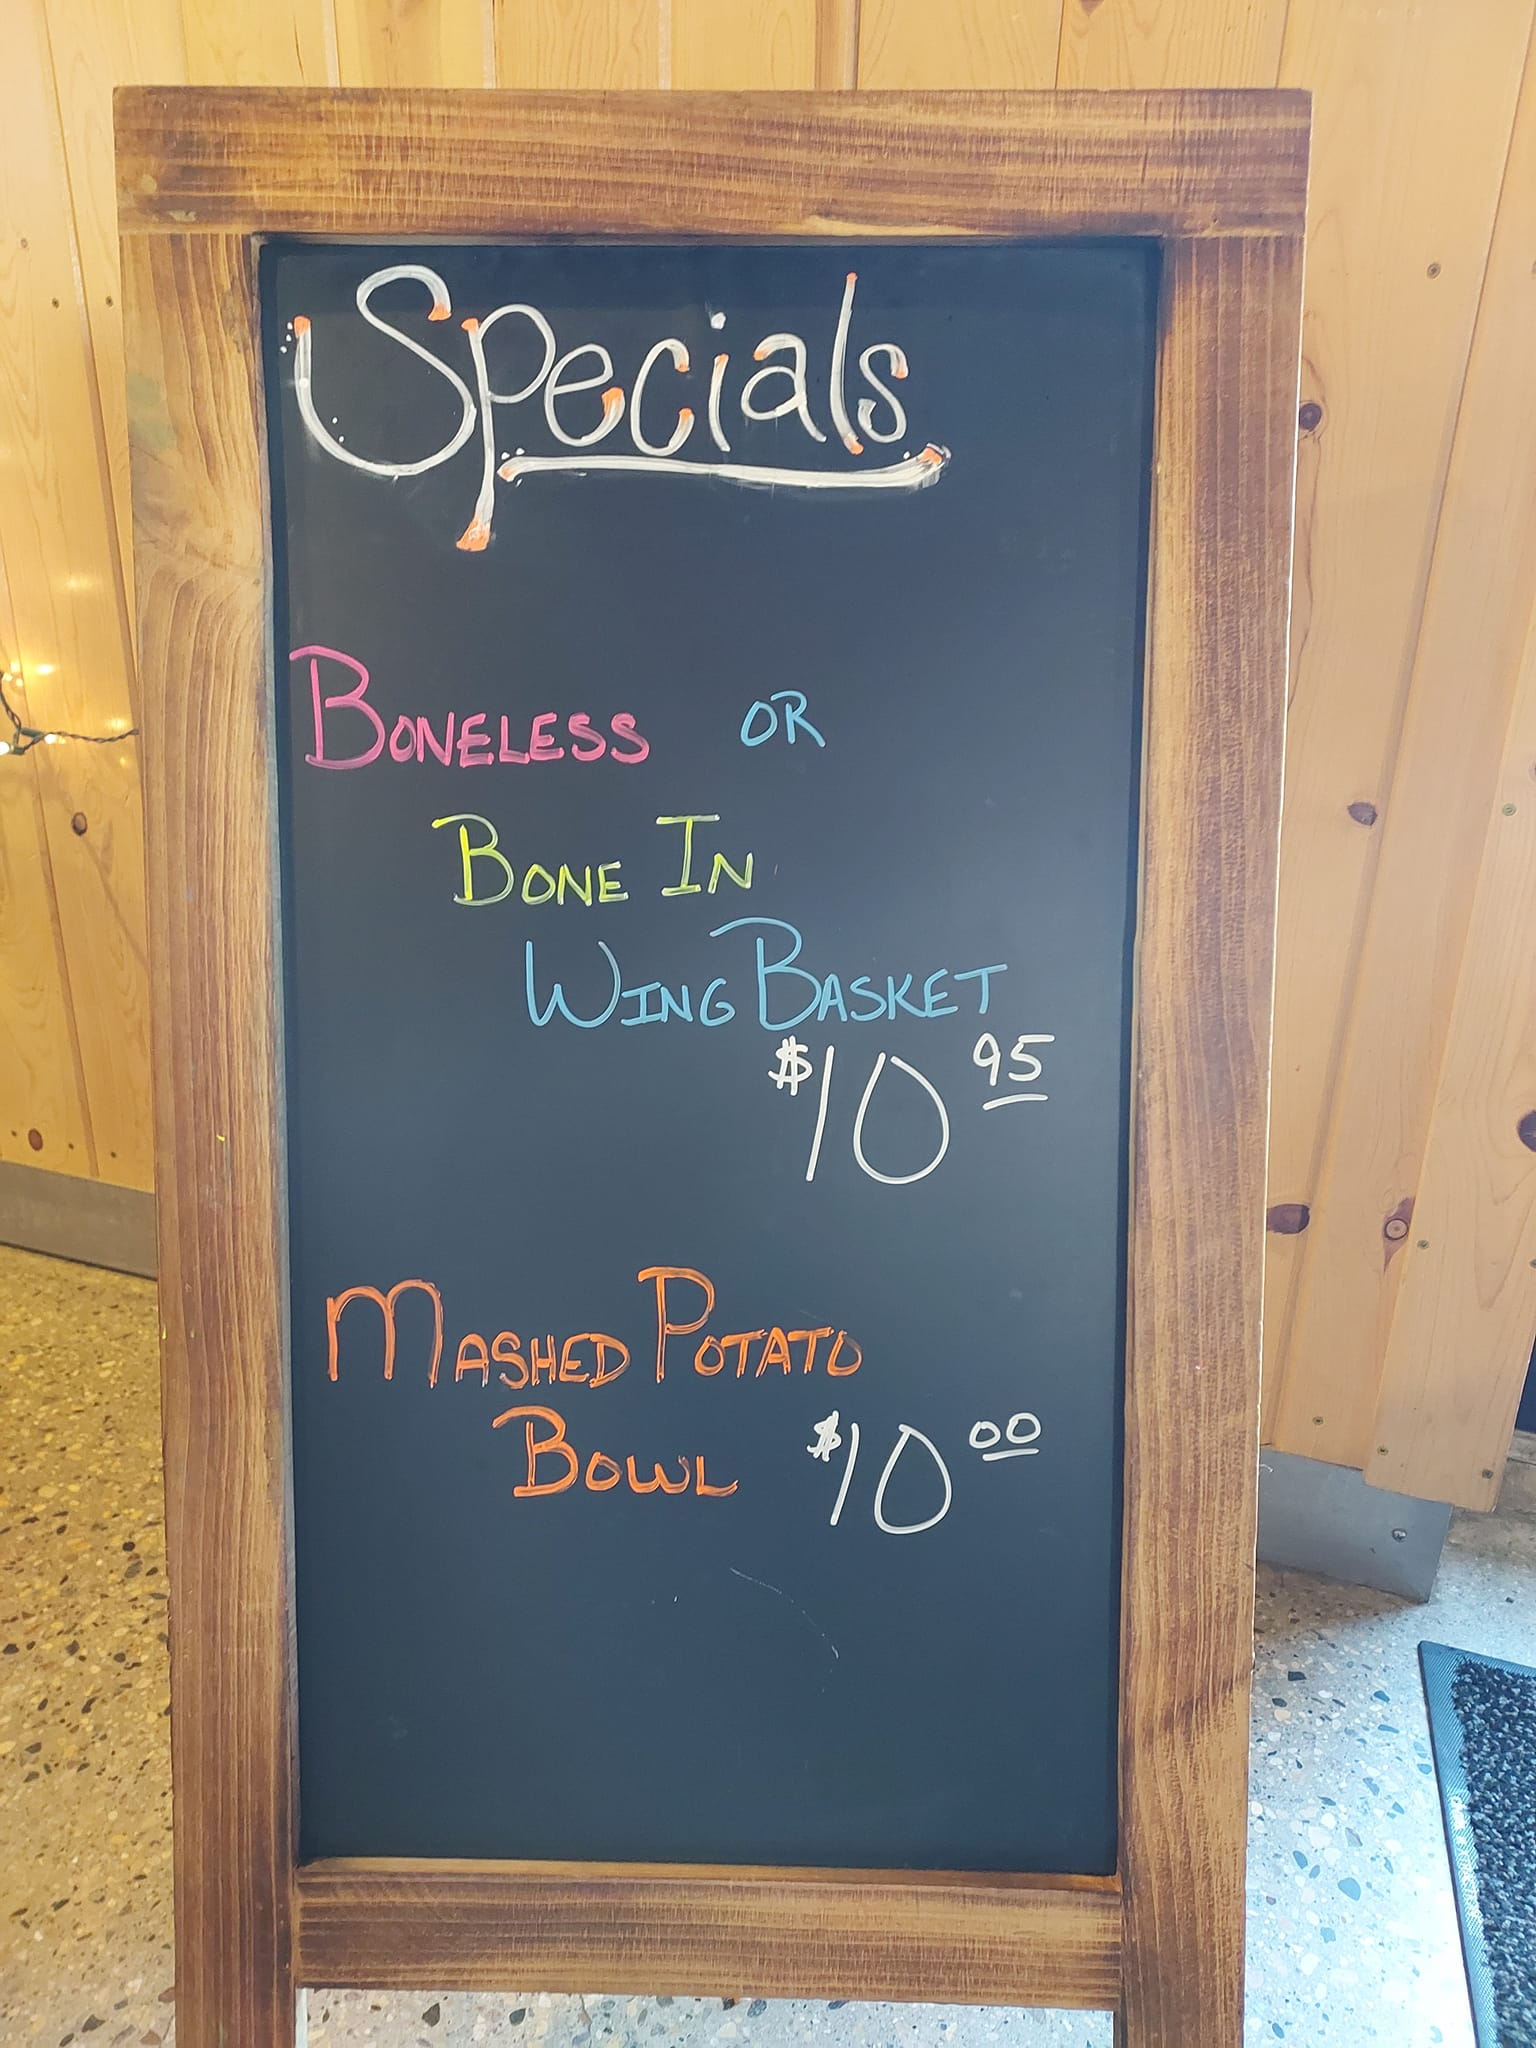 Specials
BONELESS OR
BONE IN
WING BASKET
$10 95
MASHED POTATO
BOWL $10 00